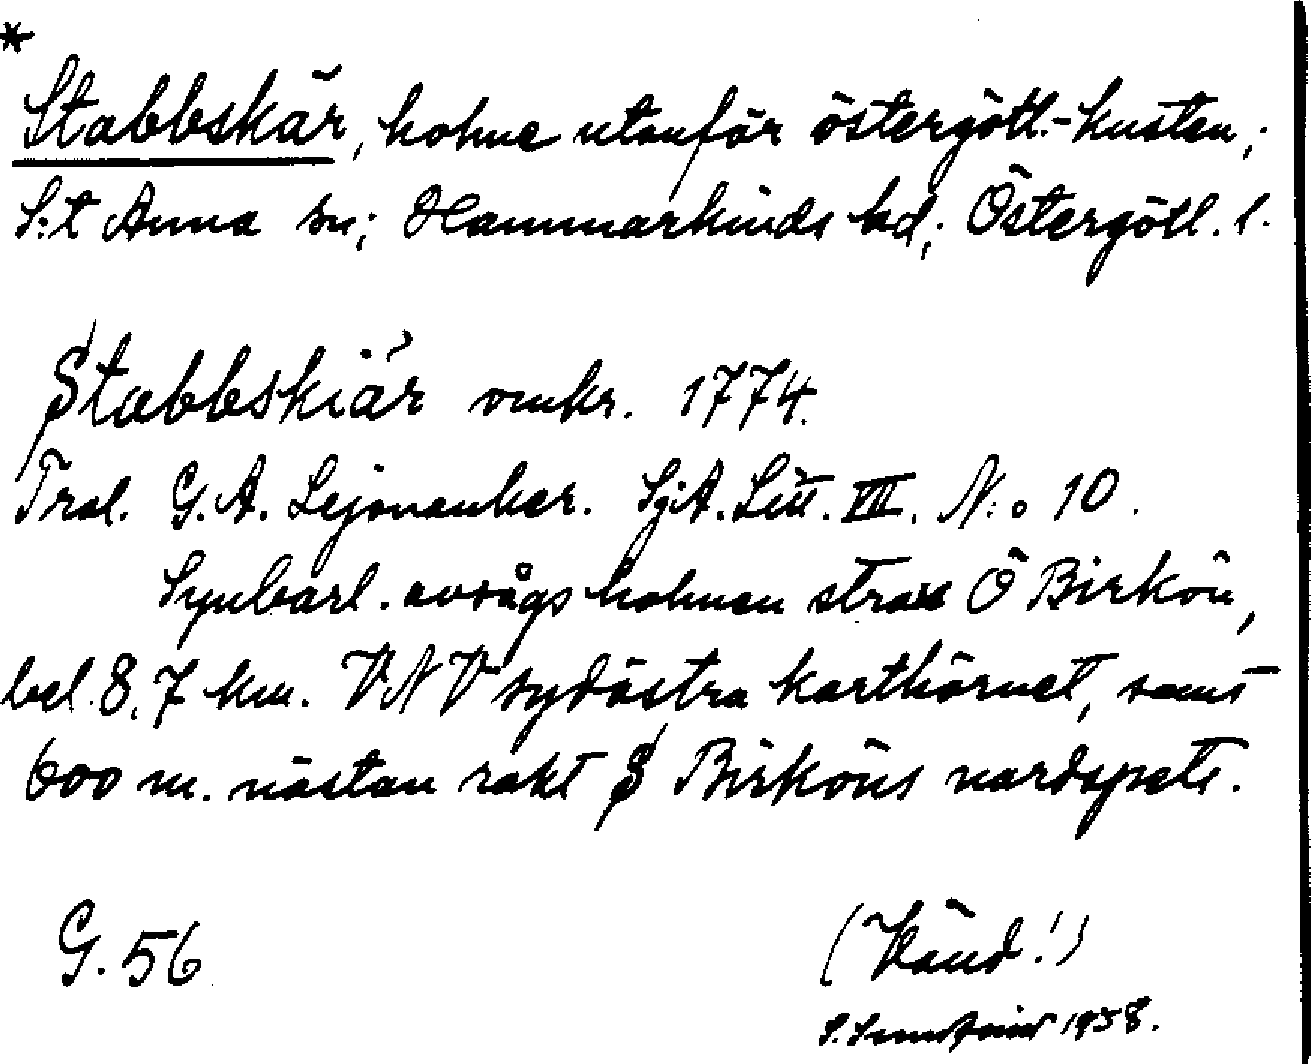 *
Stabbskär, holme utanför östergötl.-kusten,;
S:t Anna sn; Hammarkinds hd; Östergötl. l.
Stabbskiär omkr. 1774.
Trol. G. A. Lejonanker. SjA. Litt. VII. N:o 10.
Synbarl. avsågs holmen strax Ö Birkön,
bel. 8,7 km. VNV sydöstra karthörnet, samt
600 m. nästan rakt S Birköns nordspets.
G. 56
(Känd!)
1958.